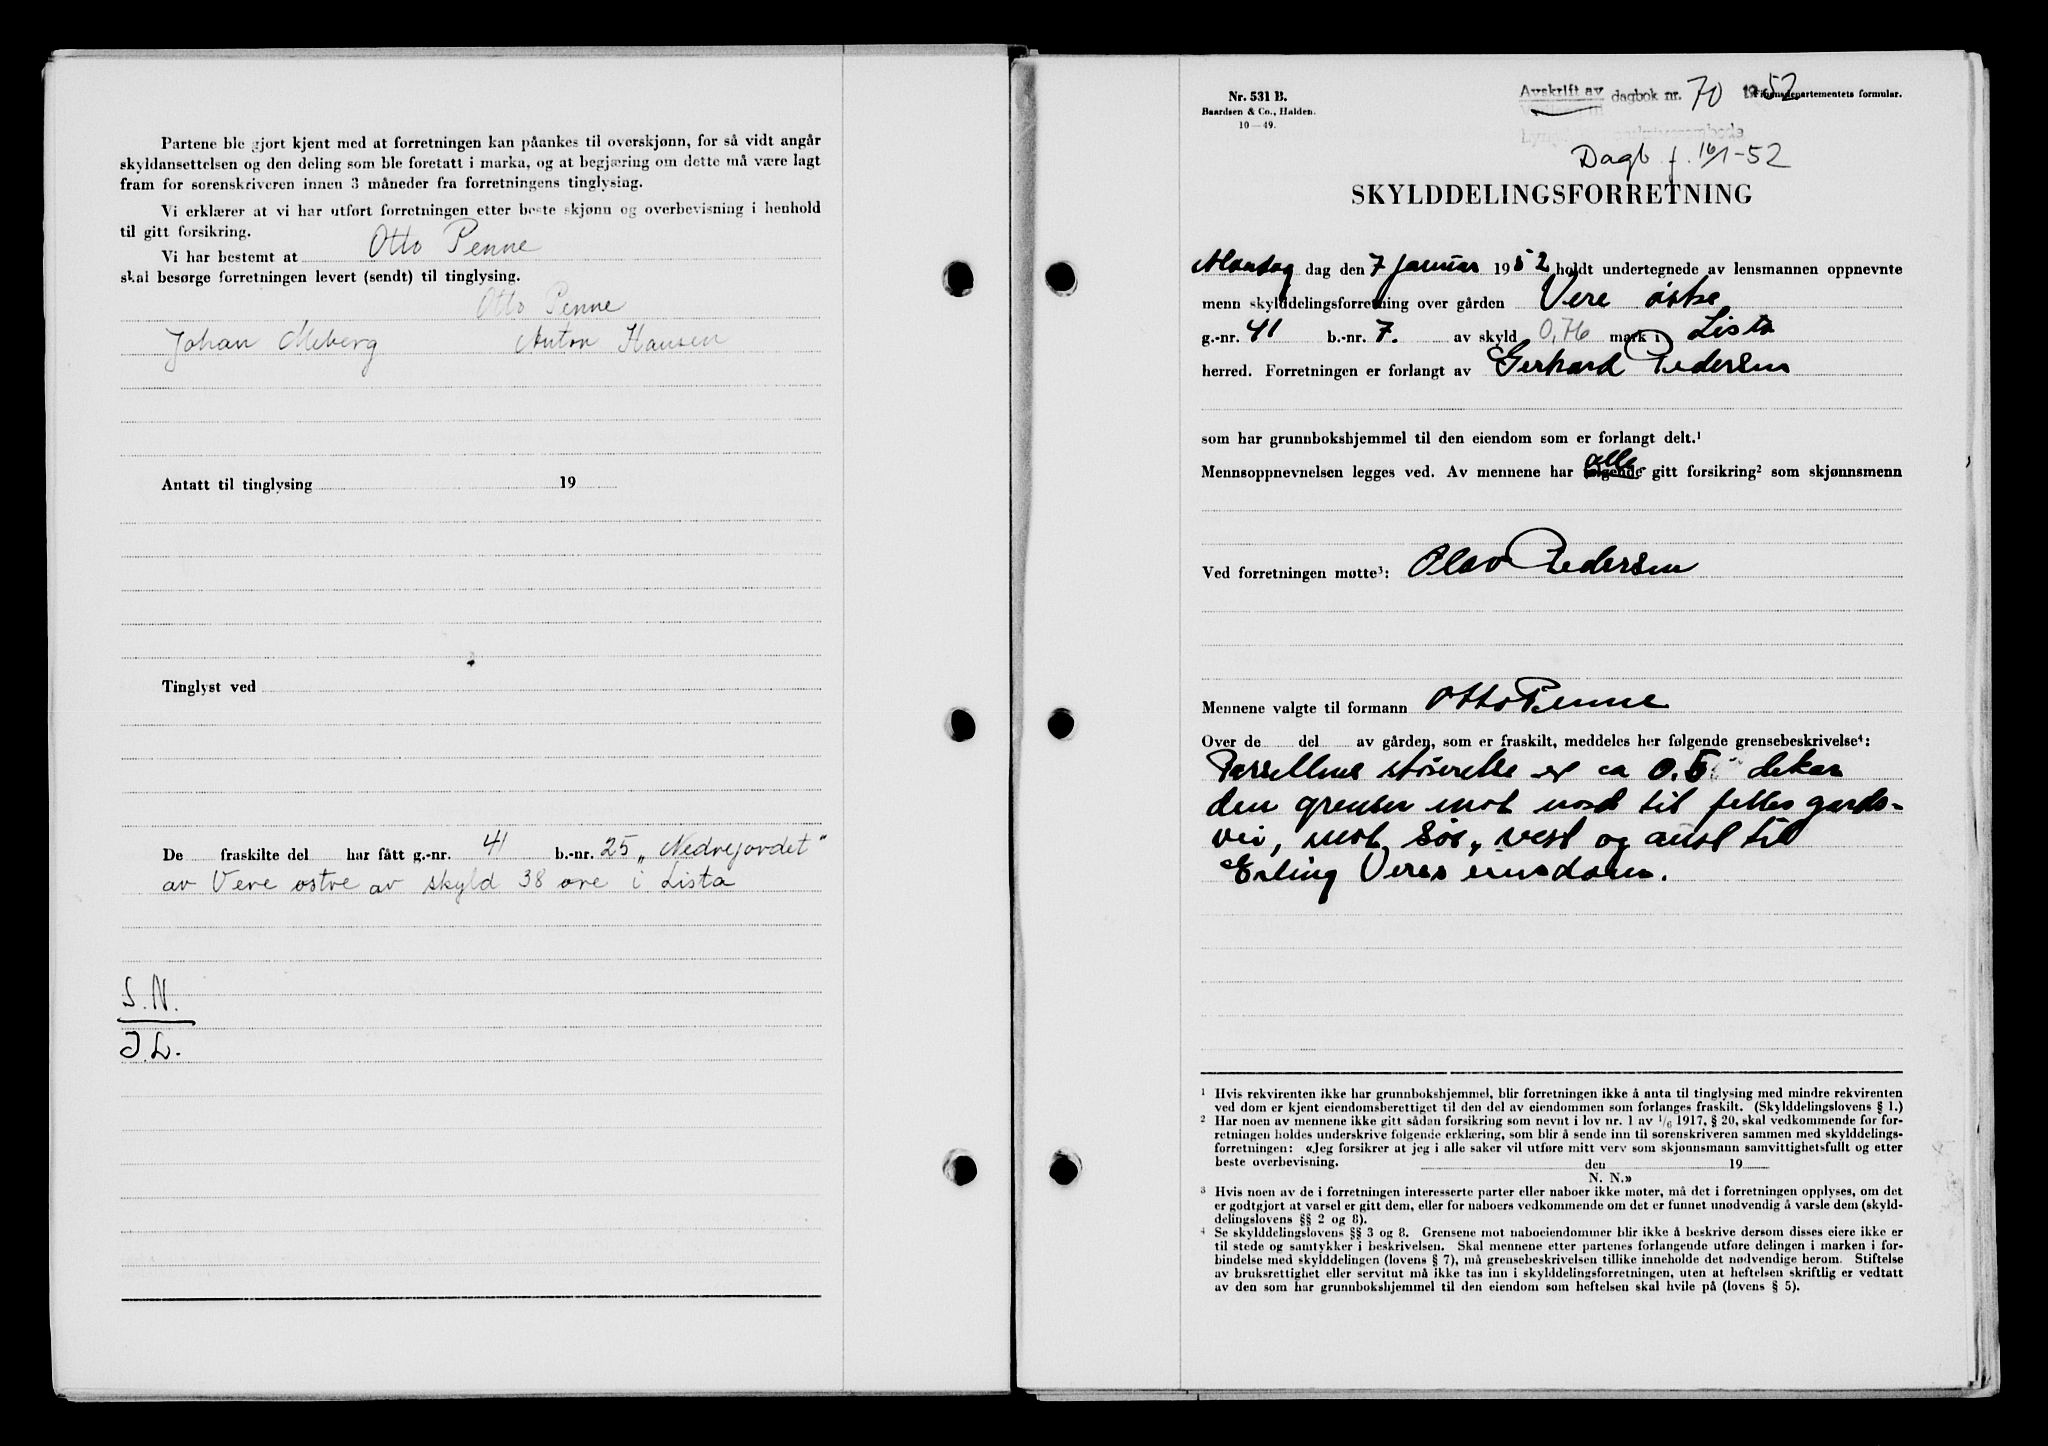 Partene ble gjort kjent med at forretningen kan påankes til overskjønn, for så vidt angår
skyldansettelsen og den deling som ble foretatt i marka, og at begjæring om dette må være lagt
fram for sorenskriveren innen 3 måneder fra forretningens tinglysing.
Vi erklærer at vi har utført forretningen etter beste skjønn og overbevisning i henhold
til gitt forsikring.
Vi har bestemt at Otto Penne
skal besørge forretningen levert (sendt) til tinglysing.
Otto Penne
Johan Meberg Anton Hansen
Antatt til tinglysing 19
Tinglyst ved
De fraskilte del har fått g.-nr. 41 b.-nr. 25 „Nedrejordet"
av Vere østre av skyld 38 øre i Lista
S.N.
J.L.
Nr. 531 B.
Baardsen & Co., Halden.
10—49.
Avskrift av dagbok nr. 70 1952 Finansdepartementets formular.
Dagb f. 16/1-52
SKYLDDELINGSFORRETNING
Mandag dag den 7 januar 1952 holdt undertegnede av lensmannen oppnevnte
menn skylddelingsforretning over gården Vere østre
g.-nr. 41 b.-nr. 7. av skyld 0,76 mark i Lista
herred. Forretningen er forlangt av Gerhard Pedersen
som har grunnbokshjemmel til den eiendom som er forlangt delt.¹
alle
Mennsoppnevnelsen legges ved. Av mennene har følgende gitt forsikring² som skjønnsmenn
Ved forretningen møtte³: Olav Pedersen
Mennene valgte til formann Otto Penne
Over de del av gården, som er fraskilt, meddeles her følgende grensebeskrivelse⁴:
Parsellens størrelse er ca 0.5 dekar
den grenser mot nord til felles gards-
vei, mot sør, vest og aust til
Erling Veres eiendom.
¹ Hvis rekvirenten ikke har grunnbokshjemmel, blir forretningen ikke å anta til tinglysing med mindre rekvirenten
ved dom er kjent eiendomsberettiget til den del av eiendommen som forlanges fraskilt. (Skylddelingslovens § 1.)
² Har noen av mennene ikke gitt sådan forsikring som nevnt i lov nr. 1 av 1/6 1917, § 20, skal vedkommende før for-
retningen holdes underskrive følgende erklæring, som blir å sende inn til sorenskriveren sammen med skylddelings-
forretningen: «Jeg forsikrer at jeg i alle saker vil utføre mitt verv som skjønnsmann samvittighetsfullt og etter
beste overbevisning. den 19
N. N.»
³ Hvis noen av de i forretningen interesserte parter eller naboer ikke møter, må det i forretningen opplyses, om det
er godtgjort at varsel er gitt dem, eller for naboers vedkommende om det er funnet unødvendig å varsle dem (skyld-
delingslovens §§ 2 og 8).
⁴ Se skylddelingslovens §§ 3 og 8. Grensene mot naboeiendommer blir ikke å beskrive dersom disses eiere ikke er
til stede og samtykker i beskrivelsen. Skal mennene etter partenes forlangende utføre delingen i marken i for-
bindelse med skylddelingen (lovens § 7), må grensebeskrivelsen tillike inneholde det nødvendige herom. Stiftelse
av bruksrettighet eller servitut må ikke tas inn i skylddelingsforretningen, uten at heftelsen skriftlig er vedtatt
av den som har grunnbokshjemmel til den eiendom som heftelsen skal hvile på (lovens § 5).